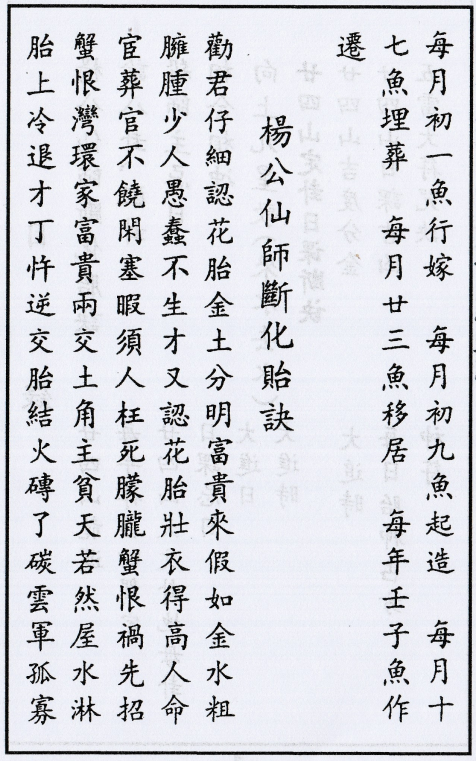 每月初一魚行嫁　每月初九魚起造　每月十
七魚埋葬　每月廿三魚移居　每年壬子魚作
遷
楊公仙師斷化貽訣
勸君仔細認花胎金土分明富貴來假如金水粗
臃腫少人愚蠢不生才又認花胎壯衣得高人命
宦葬官不饒閑塞暇須人枉死朦朧蟹恨禍先招
蟹恨灣環家富貴兩交土角主貧天若然屋水淋
胎上冷退才丁忤逆交胎結火磚了碳雲軍孤寡